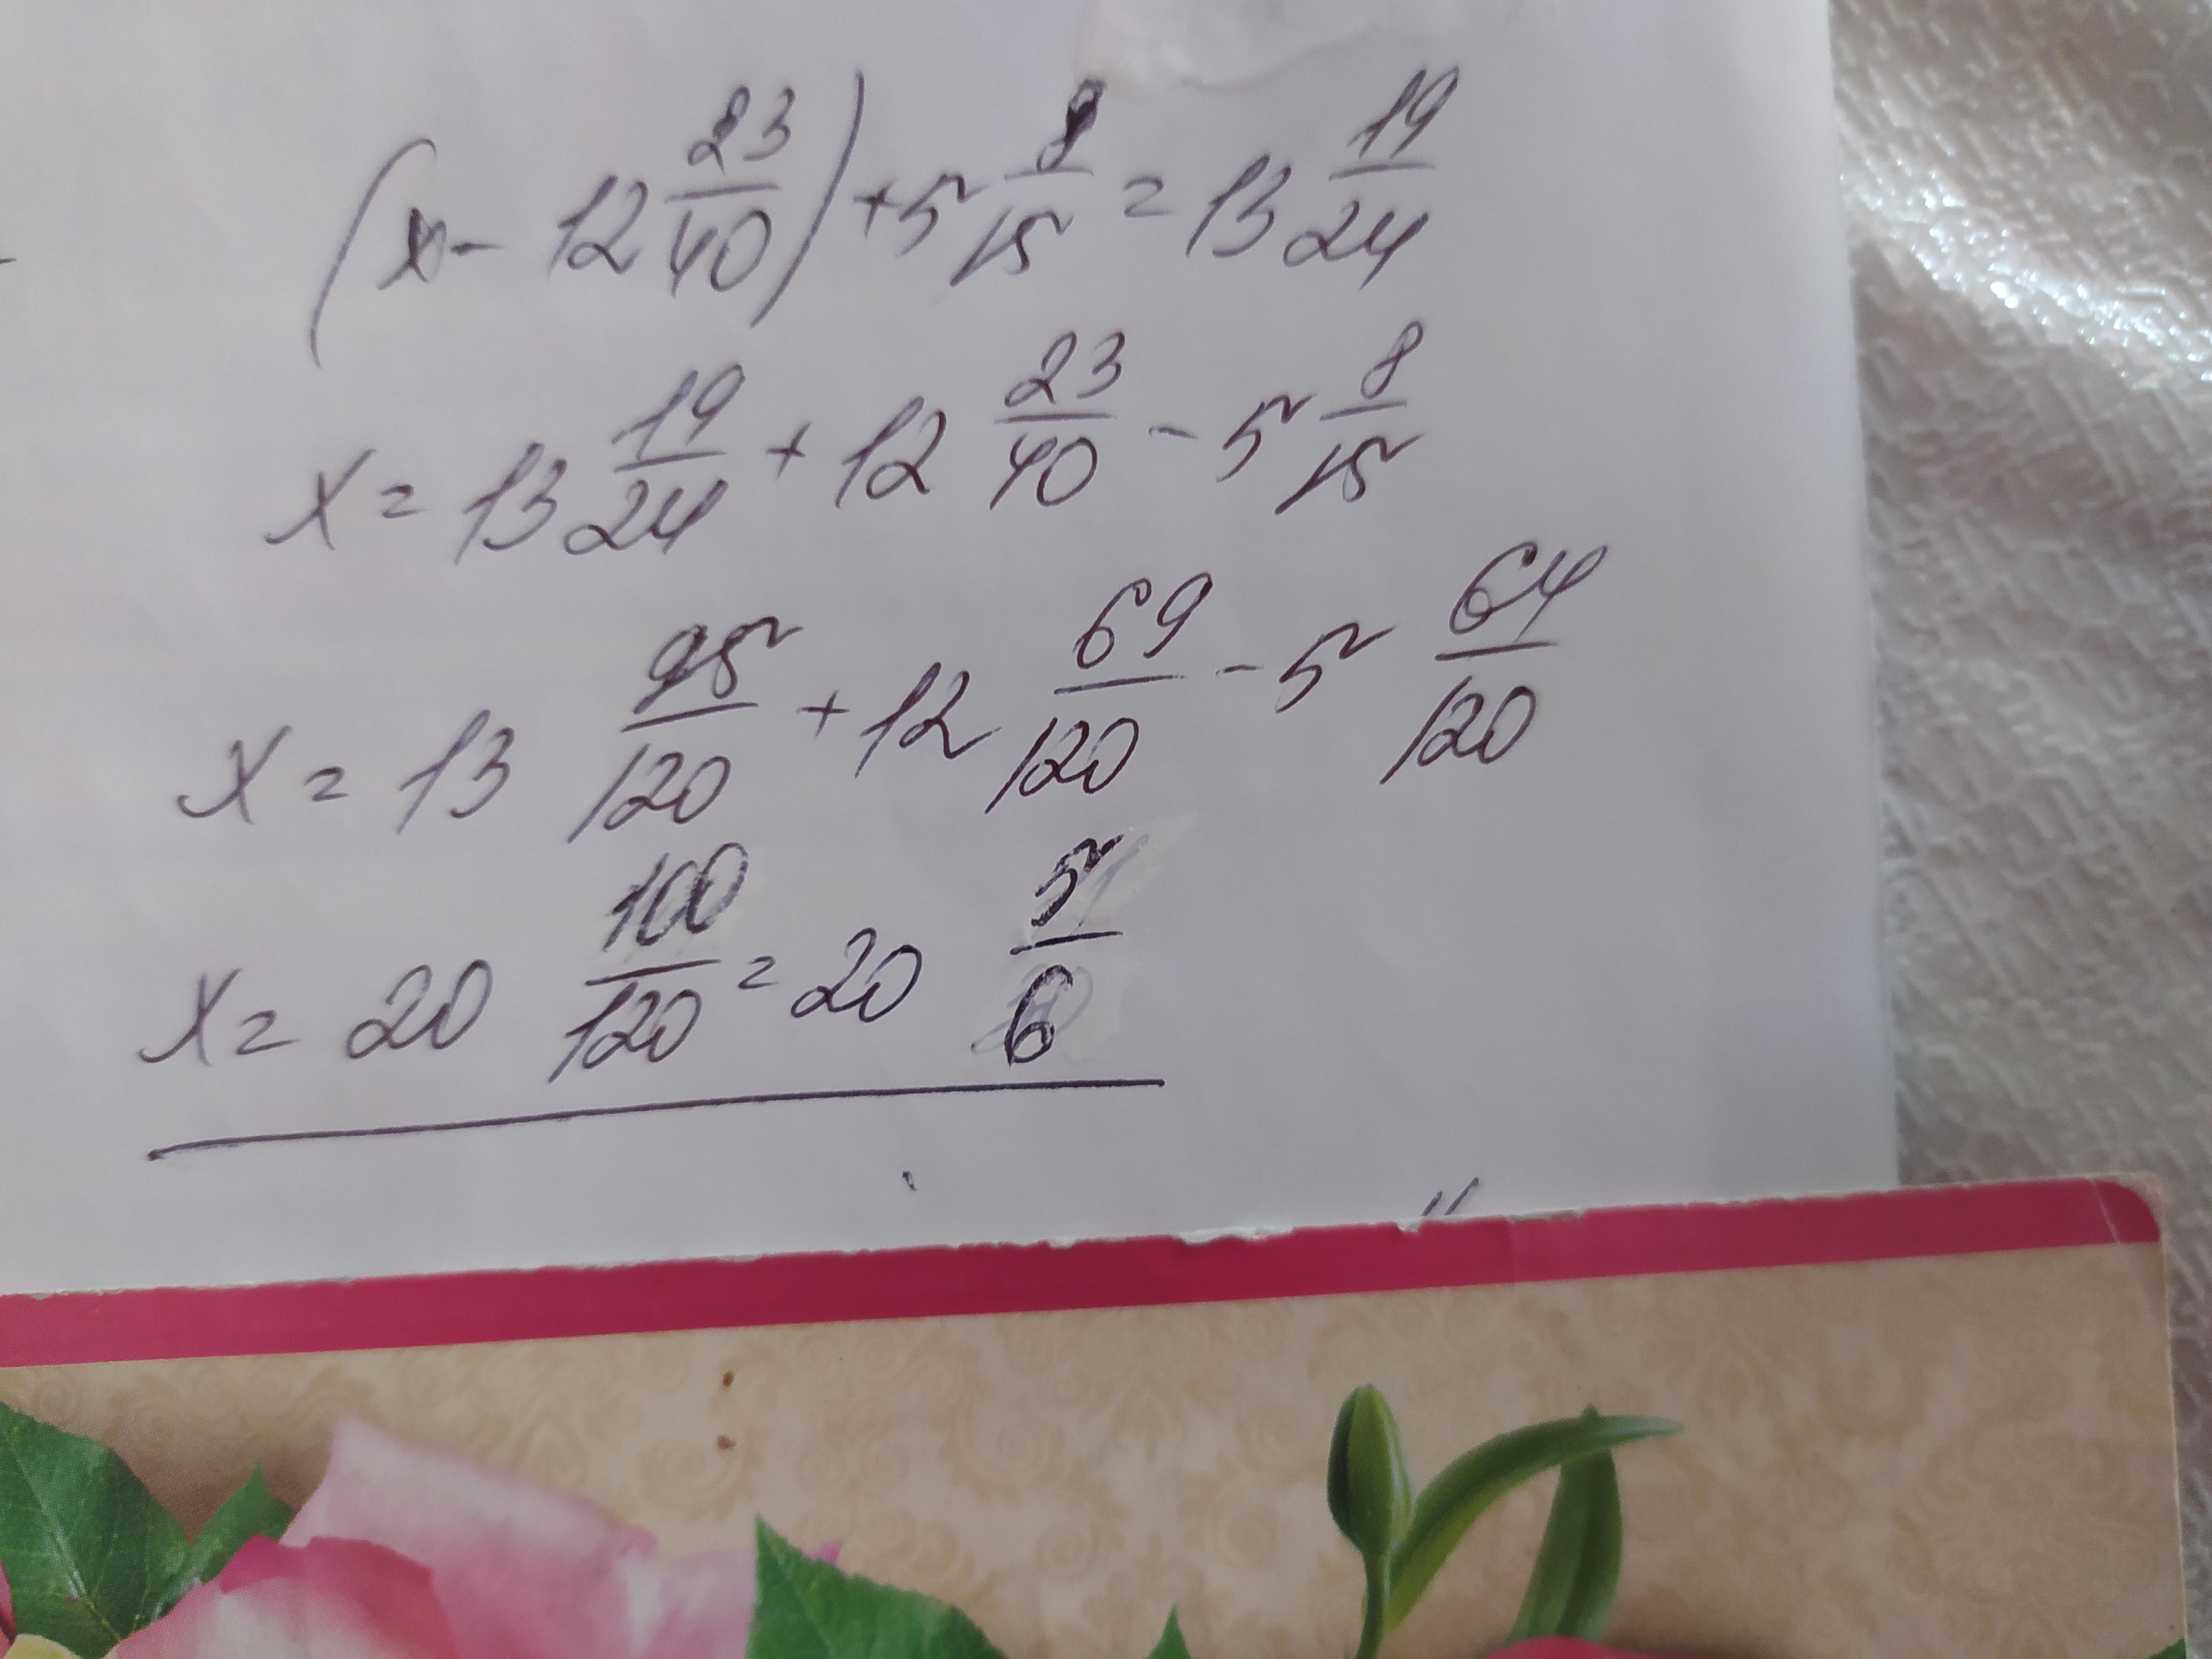 (x - 12 23/40) + 5 8/15 = 13 19/24
x = 13 19/24 + 12 23/40 - 5 8/15
x = 13 95/120 + 12 69/120 - 5 64/120
x = 20 100/120 = 20 5/6